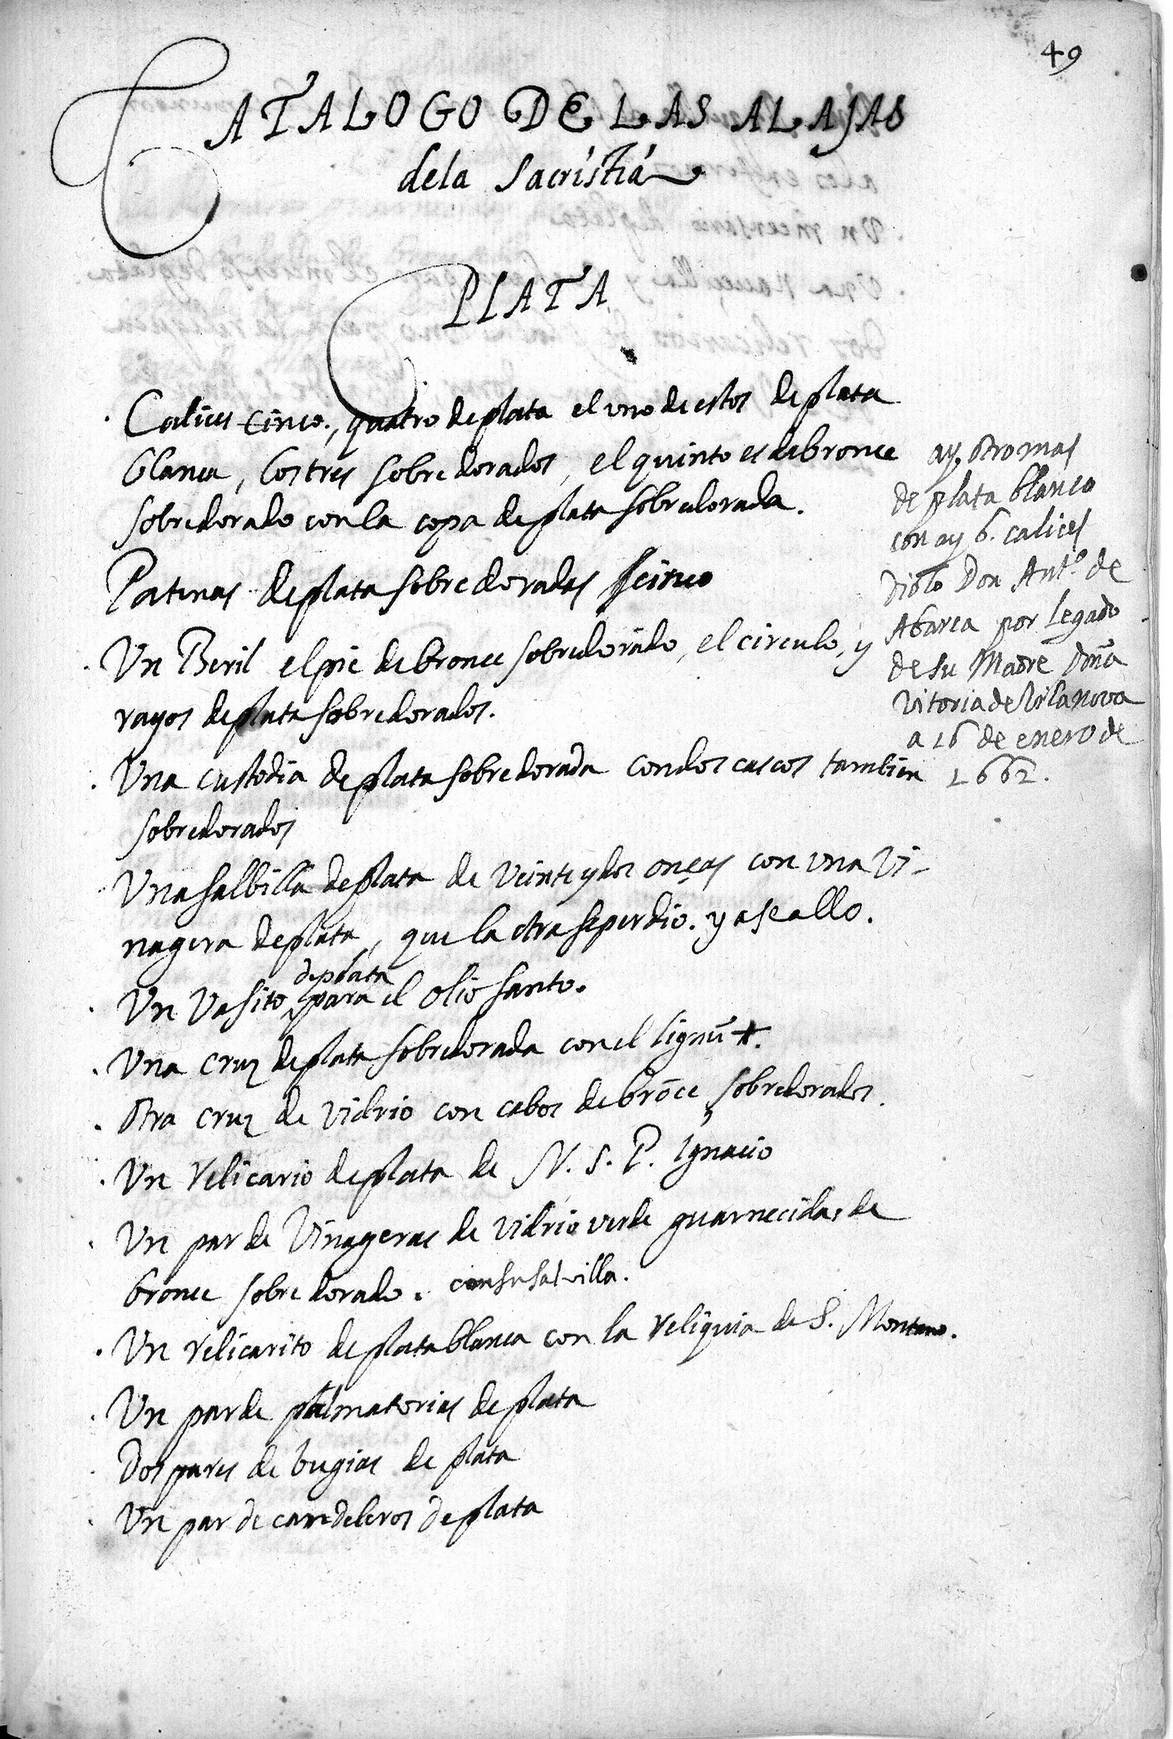 49
CATALOGO DE LAS ALAJAS
dela Sacristia
PLATA
Calices cinco, quatro de plata el uno de estos de plata
blanca, los tres sobredorados, el quinto es de bronce
sobredorado con la copa de plata sobredorada.
Patenas de plata sobredoradas cinco
Un Beril el pie de bronce sobredorado, el circulo, y
rayos de plata sobredorados.
Una custodia de plata sobredorada con dos cascos tambien
sobredorados
Una salbilla de plata de veinte y dos onças con una vi-
nagera de plata, que la otra se perdio. ya se allo.
Un Vasito de plata para el olio santo.
Una cruz de plata sobredorada con el lignũ +.
Otra cruz de vidrio con cabos de brõce sobredorados.
Un relicario de plata de N. S. P. Ignacio
Un par de Vinageras de vidrio verde guarnecidas de
bronce sobredorado. con su salvilla.
Un relicarito de plata blanca con la reliquia de S. Montano.
Un par de palmatorias de plata
Dos pares de bugias de plata
Un par de candeleros de plata
ay otro mas
de plata blanco
con q ay 6. calices
diolo Don Ant.º de
Abarca por legado
de su Madre Doña
Vitoria de Vilanova
a 16 de enero de
1662.